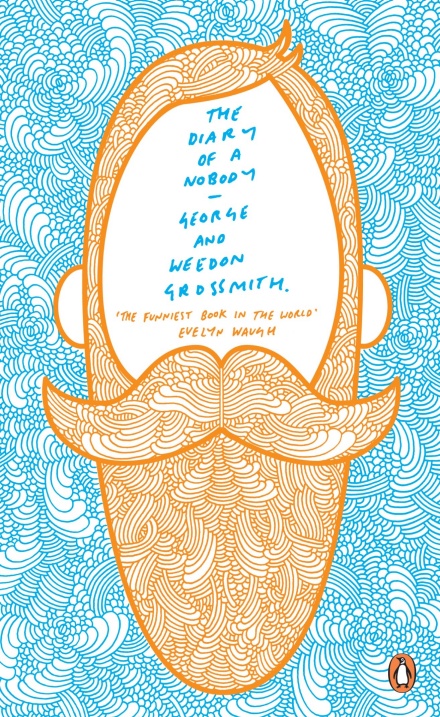 THE
DIARY
OF A
NOBODY
—
GEORGE
AND
WEEDON
GROSSMITH.
'THE FUNNIEST BOOK IN THE WORLD'
EVELYN WAUGH